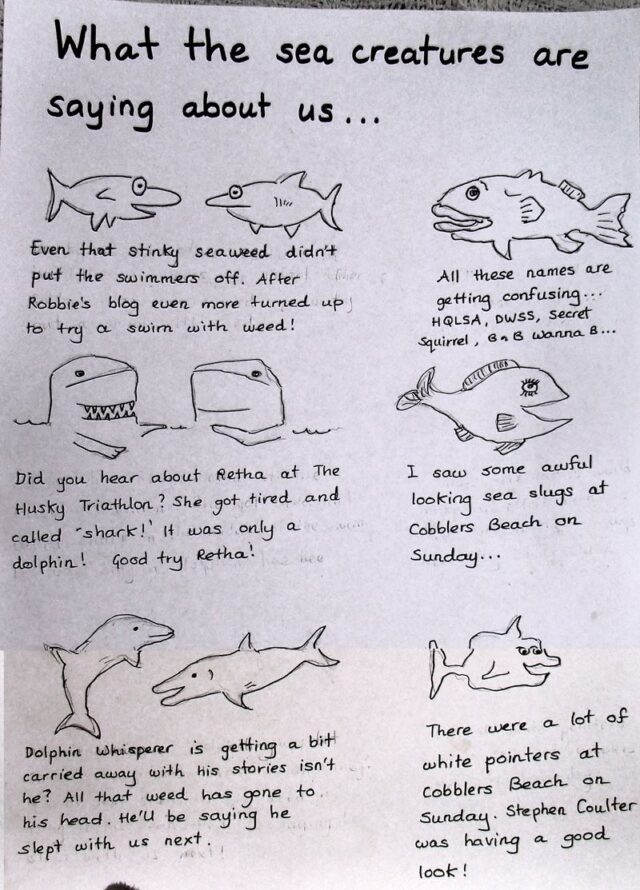 What the sea creatures are
saying about us...
Even that stinky seaweed didn't
put the swimmers off. After
Robbie's blog even more turned up
to try a swim with weed!
All these names are
getting confusing...
HQLSA, DWSS, Secret
Squirrel, B n B wanna B...
Did you hear about Retha at The
Husky Triathlon? She got tired and
called 'shark!' It was only a
dolphin! Good try Retha!
I saw some awful
looking sea slugs at
Cobblers Beach on
Sunday...
Dolphin Whisperer is getting a bit
carried away with his stories isn't
he? All that weed has gone to
his head. He'll be saying he
slept with us next.
There were a lot of
white pointers at
Cobblers Beach on
Sunday. Stephen Coulter
was having a good
look!